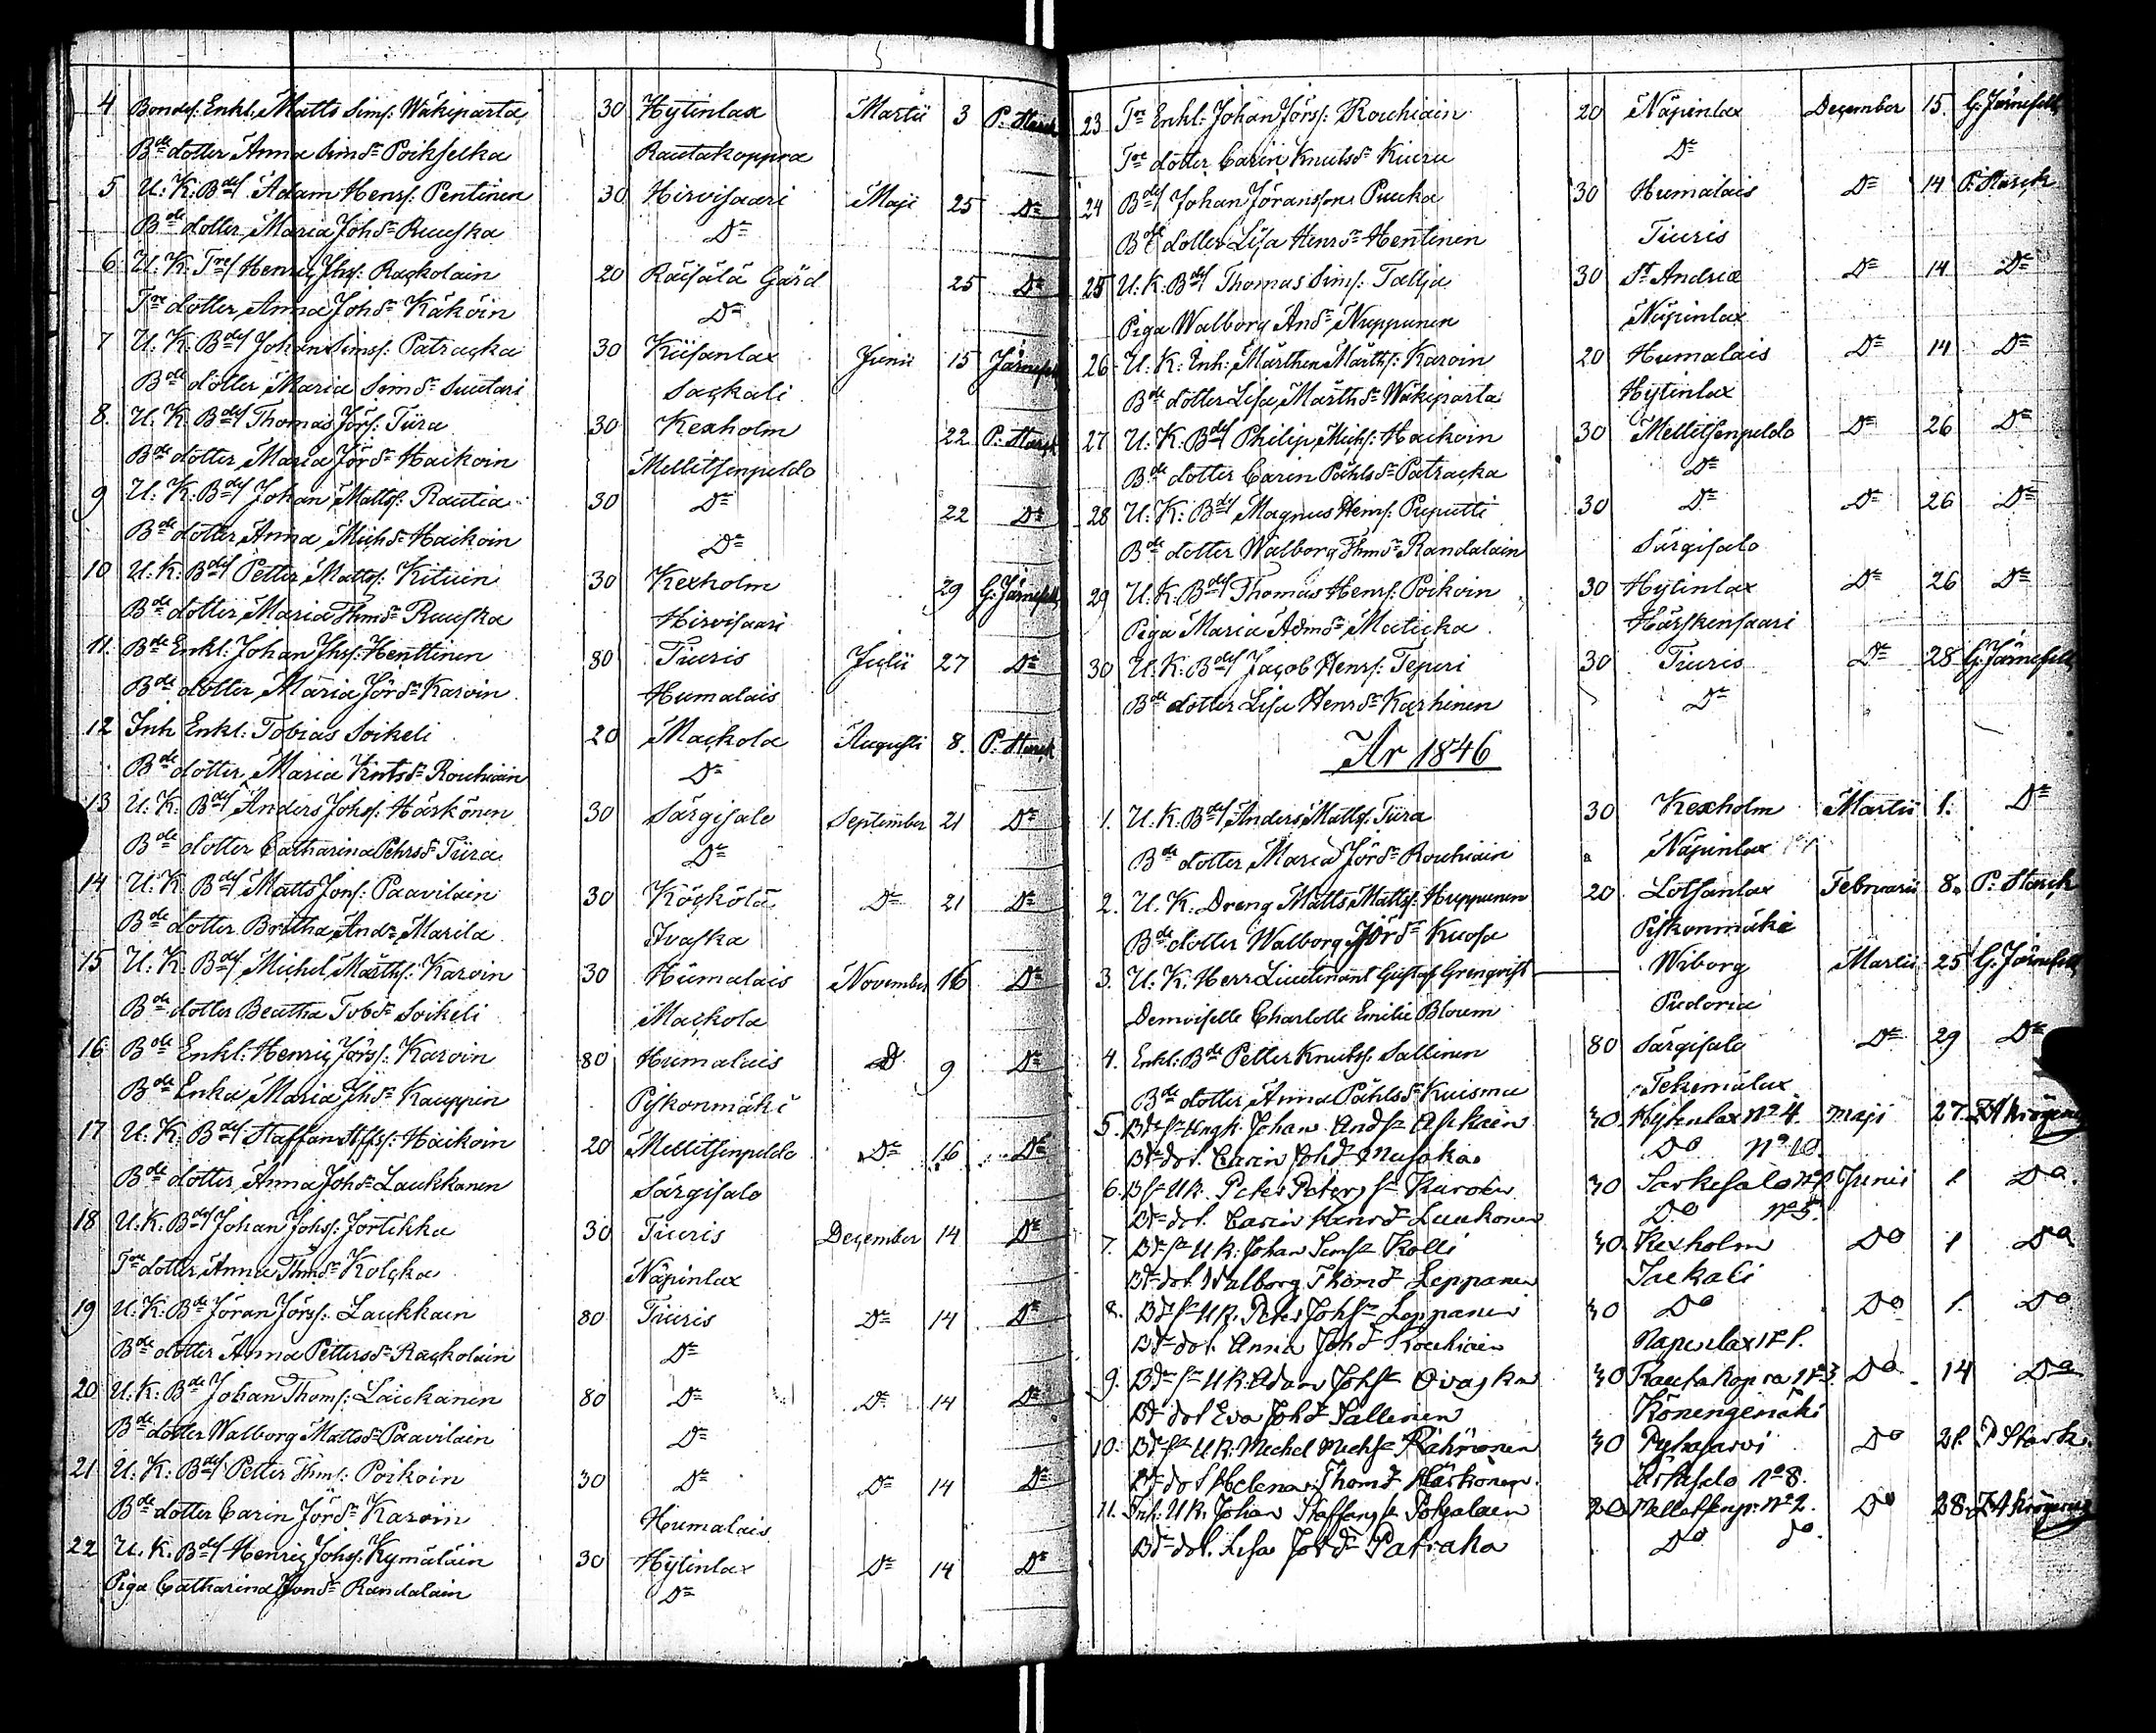 4 Bondes: Enkl: Matts Sims: Wäkiparta 30 Hytinlax Martii 3 P. Starck
Bde dotter Anna Simsdr Poikselka Rautakoppra
5 U: K: Bdes Adam Henrs: Pentinen 30 Hirvisaari Maji 25 Do
Bde dotter Maria Johsdr Ruuska Do
6 U: K: Tres Henric Jhs: Rackolain 20 Räisälä Gård 25 Do
Tre dotter Anna Johsdr Käköin Do
7 U: K: Bdes Johan Simss: Patracka 30 Kiisanlax Junii 15 Järnefelt
Bde dotter Maria Simsdr Suutari Sackali
8. U: K: Bdes Thomas Jörs: Tiira 30 Kexholm 22 P: Starck
Bde dotter Maria Jörsdr Haikoin Mellitsenpeldo
9 U: K: Bdes Johan Matts: Rautia 30 Do 22 Do
Bde dotter Anna Michsdr Haikoin Do
10 U: K: Bdes Petter Matts: Kituin 30 Kexholm 29 G: Järnefelt
Bde dotter Maria Thmsdr Ruuska Hirvisaari
11. Bde Enkl: Johan Jhs: Henttinen 80 Tiuris Juglii 27 Do
Bde dotter Maria Jörsdr Karvin Humalais
12 Inh Enkl: Tobias Soikeli 20 Mackola Augusti 8. P: Starck
Bde dotter Maria Kntsdr Rouhiain Do
13 U: K: Bdes Anders Johs: Härkönen 30 Särgisalo September 21 Do
Bde dotter Catharina Pehrsdr Tiira Do
14 U: K Bdes Matts Jons: Paavilain 30 Köckölä Do 21 Do
Bde dotter Britha Andr Marila Ivaska
15 U: K: Bdes Michel Märths: Karvin 30 Humalais November 16 Do
Bde dotter Beatha Tobdr Soikeli Mackola
16 Bde Enkl: Henric Jörss: Karvin 80 Humalais Do 9 Do
Bde Enka Maria Jhdr Kauppin Piskonmäki
17 U: K: Bdes Staffan Stffs: Haikoin 20 Mellitsenpeldo Do 16 Do
Bde dotter Anna Johdr Laukkanen Särgisalo
18 U: K: Bdes Johan Johs: Jortikka 30 Tiuris December 14 Do
Tre dotter Anna Thmsdr Kolcka Näpinlax
19 U: K: Bde Jöran Jörss: Laukkain 80 Tiuris Do 14 Do
Bde dotter Anna Pettersdr Rackolain Do
20 U: K: Bde Johan Thoms: Laukanen 80 Do Do 14 Do
Bde dotter Walborg Mattsdr Paavilain Do
21 U: K: Bdes Petter Thms: Poikoin 30 Do Do 14 Do
Bde dotter Carin Jördr Karvin Humalais
22 U: K: Bdes Henric Johs: Kymäläin 30 Hytinlax Do 14 Do
Piga Catharina Jonsdr Randalain Do
23 Tre Enkl: Johan Jörs: Rouhiain 20 Näpinlax December 15. G: Järnefelt
Tre dotter Carin Knutsdr Kiuru Do
24 Bdes Johan Jöransson Puuka 30 Humalais Do 14 P: Starck
Bde dotter Lisa Henrsdr Hentinen Tiuris
25 U: K: Bdes Thomas Sims: Tallja 30 St Andrie Do 14 Do
Piga Walborg Andsr Nuppunen Näpinlax
26 U: K: Inh: Märthen Märths: Karvin 20 Humalais Do 14 Do
Bde dotter Lisa Märthsdr Wäkiparta Hytinlax
27 U: K: Bdes Philip Michs: Haikoin 30 Mellitsenpeldo Do 26 Do
Bde dotter Caren Påhlsdr Patracka Do
28 U: K: Bdes Magnus Hems: Puputti 30 Do Do 26 Do
Bde dotter Walborg Thmsdr Randalain Särgisalo
29 U: K: Bdes Thomas Henrs: Poikoin 30 Hytinlax Do 26 Do
Piga Maria Admsdr Maticka Härskensaari
30 U: K: Bdes Jacob Henrs: Tepuri 30 Tiuris Do 28 G: Järnefelt
Bde dotter Lisa Henrsdr Karhinen Do
År 1846
1. U: K: Bdes Anders Matts: Tiira 30 Kexholm Martii 1. Do
Bde dotter Maria Jörsdr Rouhiain Näpinlax
2. U. K: Dreng Matts Matts: Huppunen 20 Lotsanlax Februarii 8. P: Starck
Bde dotter Walborg Jörsdr Kuosa Piskonmäki
3. U: K: Herr Lieutenant Gustaf Grenqvist Wiborg Martii 25 G: Järnefelt
Demoiselle Charlotte Emilie Bloum Pudoria
4. Enkl: Bde Petter Knuts: Sallinen 80 Särgisalo Do 29 Do
Bde dotter Anna Påhlsdr Kuisma Tekimälax
5. Bdesn Ungk. Johan Andsn Askain 30 Hytinlax No 4. Maji 27.
Bde dot. Carin Johdr Musaka Do No 10
6. Bsn UK. Peter Peterssn Karvin 30 Sarkisalo No 1 Junii 1 Do.
Bde dot. Carin Henrdr Luukonen Do No 5.
7. Bdesn UK: Johan Simsn Kolli 30. Kexholm Do 1 Do
Bde dot Walborg Thomdr Leppanen Saekali
8. Bdesn UK. Peter Johsn Leppanen 30 Do Do 1. Do
Bde dot. Anna Johdr Rouhiain Napinlax No 1.
9. Bdesn UK: Adam Johsn Ovaska 30 Rautakopra No 3. Do 14 Do
Bde dot Eva Johdr Sallinen Köningemäki
10. Bdesn UK: Michel Michsn Rähmönen 30 Pyhäjärvi Do 21. P Stark.
Bde dot Helena Thomdr Härkönen No 8.
11. Inh: UK. Johan Staffanssn Pohjalain 20 Mellitsenp: No 2. Do 28.
Bde dot. Lisa Jördr Patraka Do do.